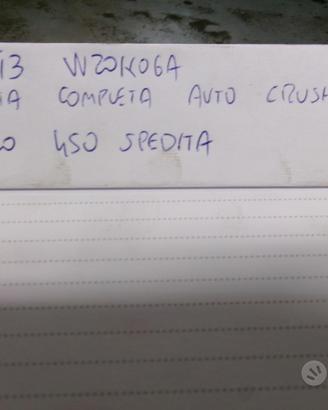 13 W20K06A
IA COMPLETA AUTO CRUSH
O 450 SPEDITA